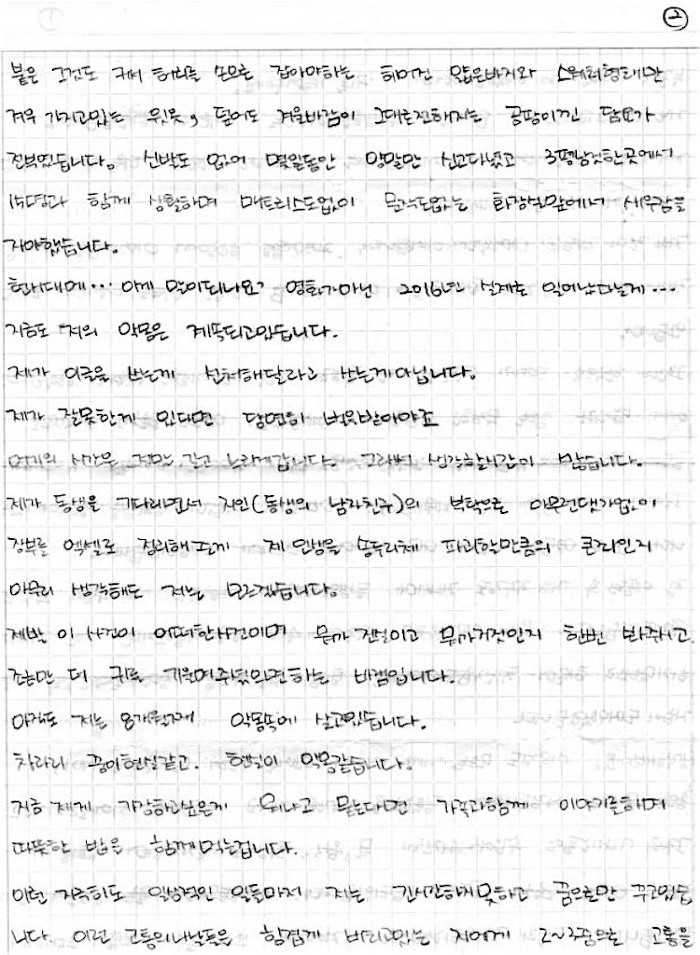 ②
붙은 그것도 커서 허리를 손으로 잡아야하는 헤어진 얇은바지와 스웨터형태만
겨우 가지고있는 윗옷, 덮어도 겨울바람이 그대로전해지는 곰팡이낀 담요가
전부였습니다. 신발도 없어 몇일동안 양말만 신고다녔고 3평남짓한곳에서
14명과 함께 생활하며 매트리스도없이 문짝도없는 화장실앞에서 새우잠을
자야했습니다.
현시대에… 이게 말이되나요? 영화가아닌 2016년도 실제로 일어났다는게…
지금도 저의 악몽은 계속되고있습니다.
제가 이글을 쓰는게 선처해달라고 쓰는게아닙니다.
제가 잘못한게 있다면 당연히 벌을받아야죠
시간은 정말 길고 느리게갑니다. 그래서 생각할시간이 많습니다.
제가 동생을 기다리면서 지인(동생의 남자친구)의 부탁으로 아무런댓가없이
장부를 엑셀로 정리해준게 제 인생을 송두리채 파괴할만큼의 큰죄인지
아무리 생각해도 저는 모르겠습니다.
제발 이 사건이 어떠한사건이며 무가 진실이고 무가거짓인지 한번 봐주시고
조금만 더 귀를 기울여주셨으면하는 바램입니다.
아직도 저는 8개월째 악몽속에 살고있습니다.
차라리 꿈이현실같고. 현실이 악몽같습니다.
저희 제게 가장하고싶은게 뭐냐고 묻는다면 가족과함께 이야기를하며
따뜻한 밥을 함께먹는겁니다.
이런 지극히도 일상적인 일들마저 저는 간사하지못하고 꿈으로만 꾸고있습
니다. 이런 고통의나날들을 힘겹게 버티고있는 저에게 2~3줄으로 고통을